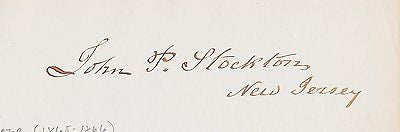 John P. Stockton,
New Jersey
(1865-1866)